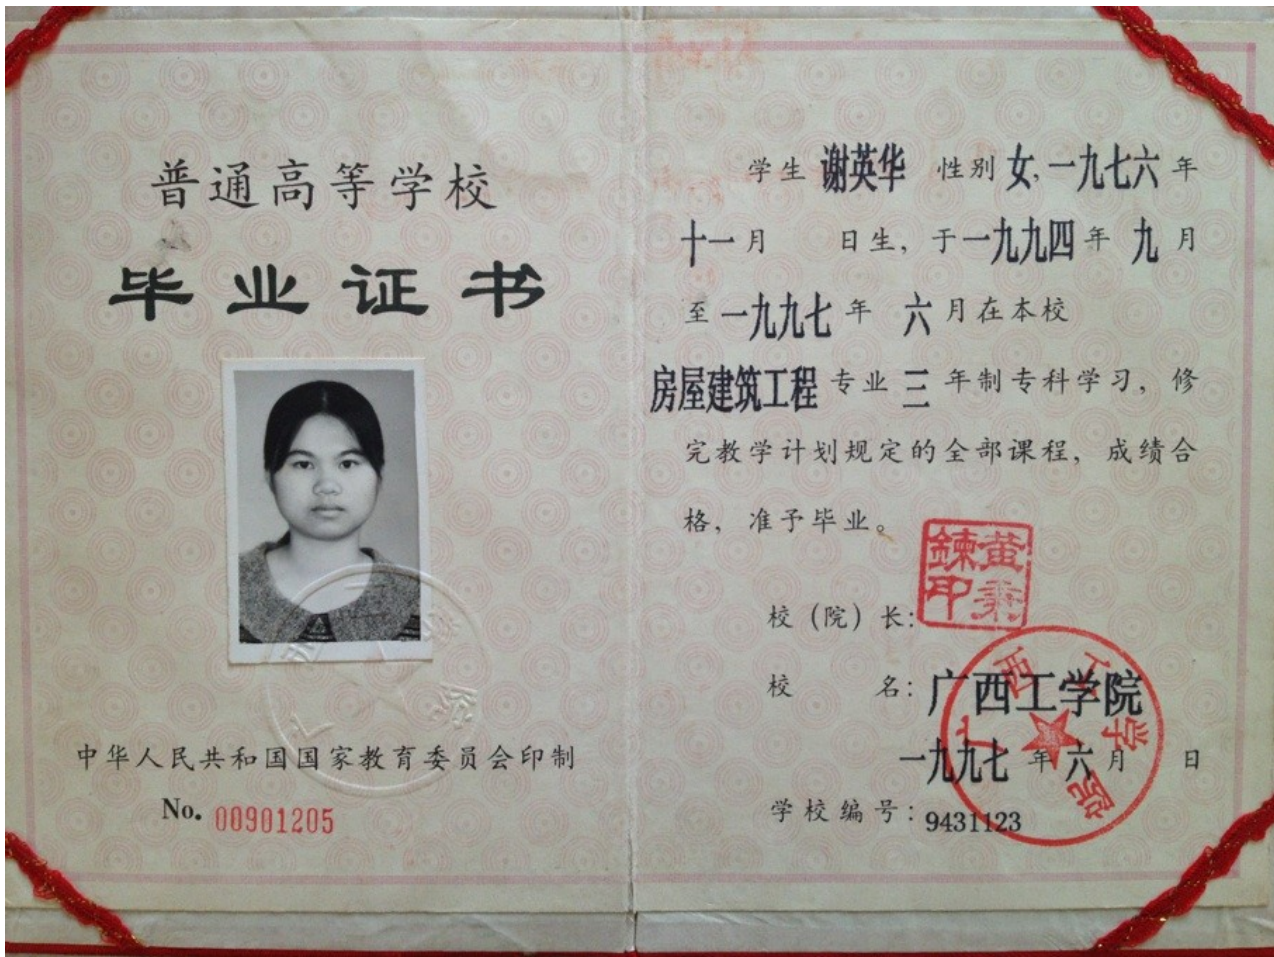 普通高等学校
毕业证书
中华人民共和国国家教育委员会印制
No. 00901205
学生 谢英华 性别 女, 一九七六 年
十一 月 日生, 于 一九九四 年 九 月
至 一九九七 年 六 月在本校
房屋建筑工程 专业 三 年制专科学习, 修
完教学计划规定的全部课程, 成绩合
格, 准予毕业。
校(院)长:
校 名: 广西工学院
一九九七 年 六 月 日
学校编号: 9431123
广西工学院